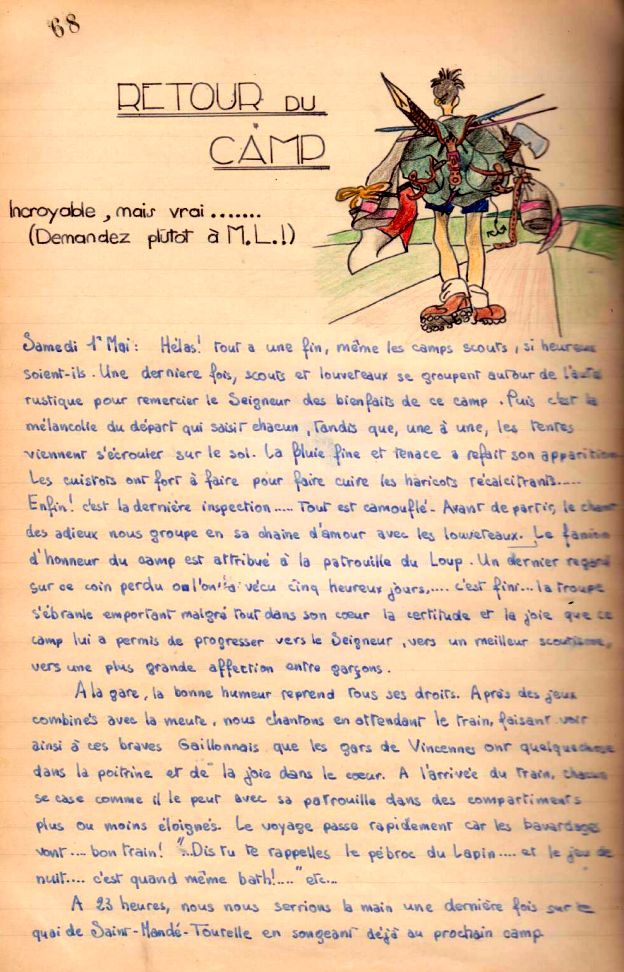 68
RETOUR DU
CAMP
Incroyable, mais vrai.......
(Demandez plutôt à M.L.!)
Samedi 1er Mai : Hélas! tout a une fin, même les camps scouts, si heureux
soient-ils. Une derniere fois, scouts et louveteaux se groupent autour de l'autel
rustique pour remercier le Seigneur des bienfaits de ce camp. Puis c'est la
mélancolie du départ qui saisit chacun, tandis que, une à une, les tentes
viennent s'écrouler sur le sol. La pluie fine et tenace a refait son apparition
Les cuistots ont fort à faire pour faire cuire les haricots récalcitrants.....
Enfin! c'est la dernière inspection..... Tout est camouflé. Avant de partir, le chant
des adieux nous groupe en sa chaine d'amour avec les louveteaux. Le fanion
d'honneur du camp est attribué à la patrouille du Loup. Un dernier regard
sur ce coin perdu où l'on a vécu cinq heureux jours,.... c'est fini... la troupe
s'ébranle emportant malgré tout dans son cœur la certitude et la joie que ce
camp lui a permis de progresser vers le Seigneur, vers un meilleur scoutisme,
vers une plus grande affection entre garçons.
A la gare, la bonne humeur reprend tous ses droits. Après des jeux
combinés avec la meute, nous chantons en attendant le train, faisant voir
ainsi à ces braves Gaillonnais que les gars de Vincennes ont quelque chose
dans la poitrine et de "la joie dans le cœur. A l'arrivée du train, chacun
se case comme il le peut avec sa patrouille dans des compartiments
plus ou moins éloignés. Le voyage passe rapidement car les bavardages
vont.... bon train! "..Dis tu te rappelles le pébroc du Lapin.... et le jeu de
nuit.... c'est quand même bath!...." etc...
A 23 heures, nous nous serrions la main une dernière fois sur le
quai de Saint-Mandé-Tourelle en songeant déjà au prochain camp